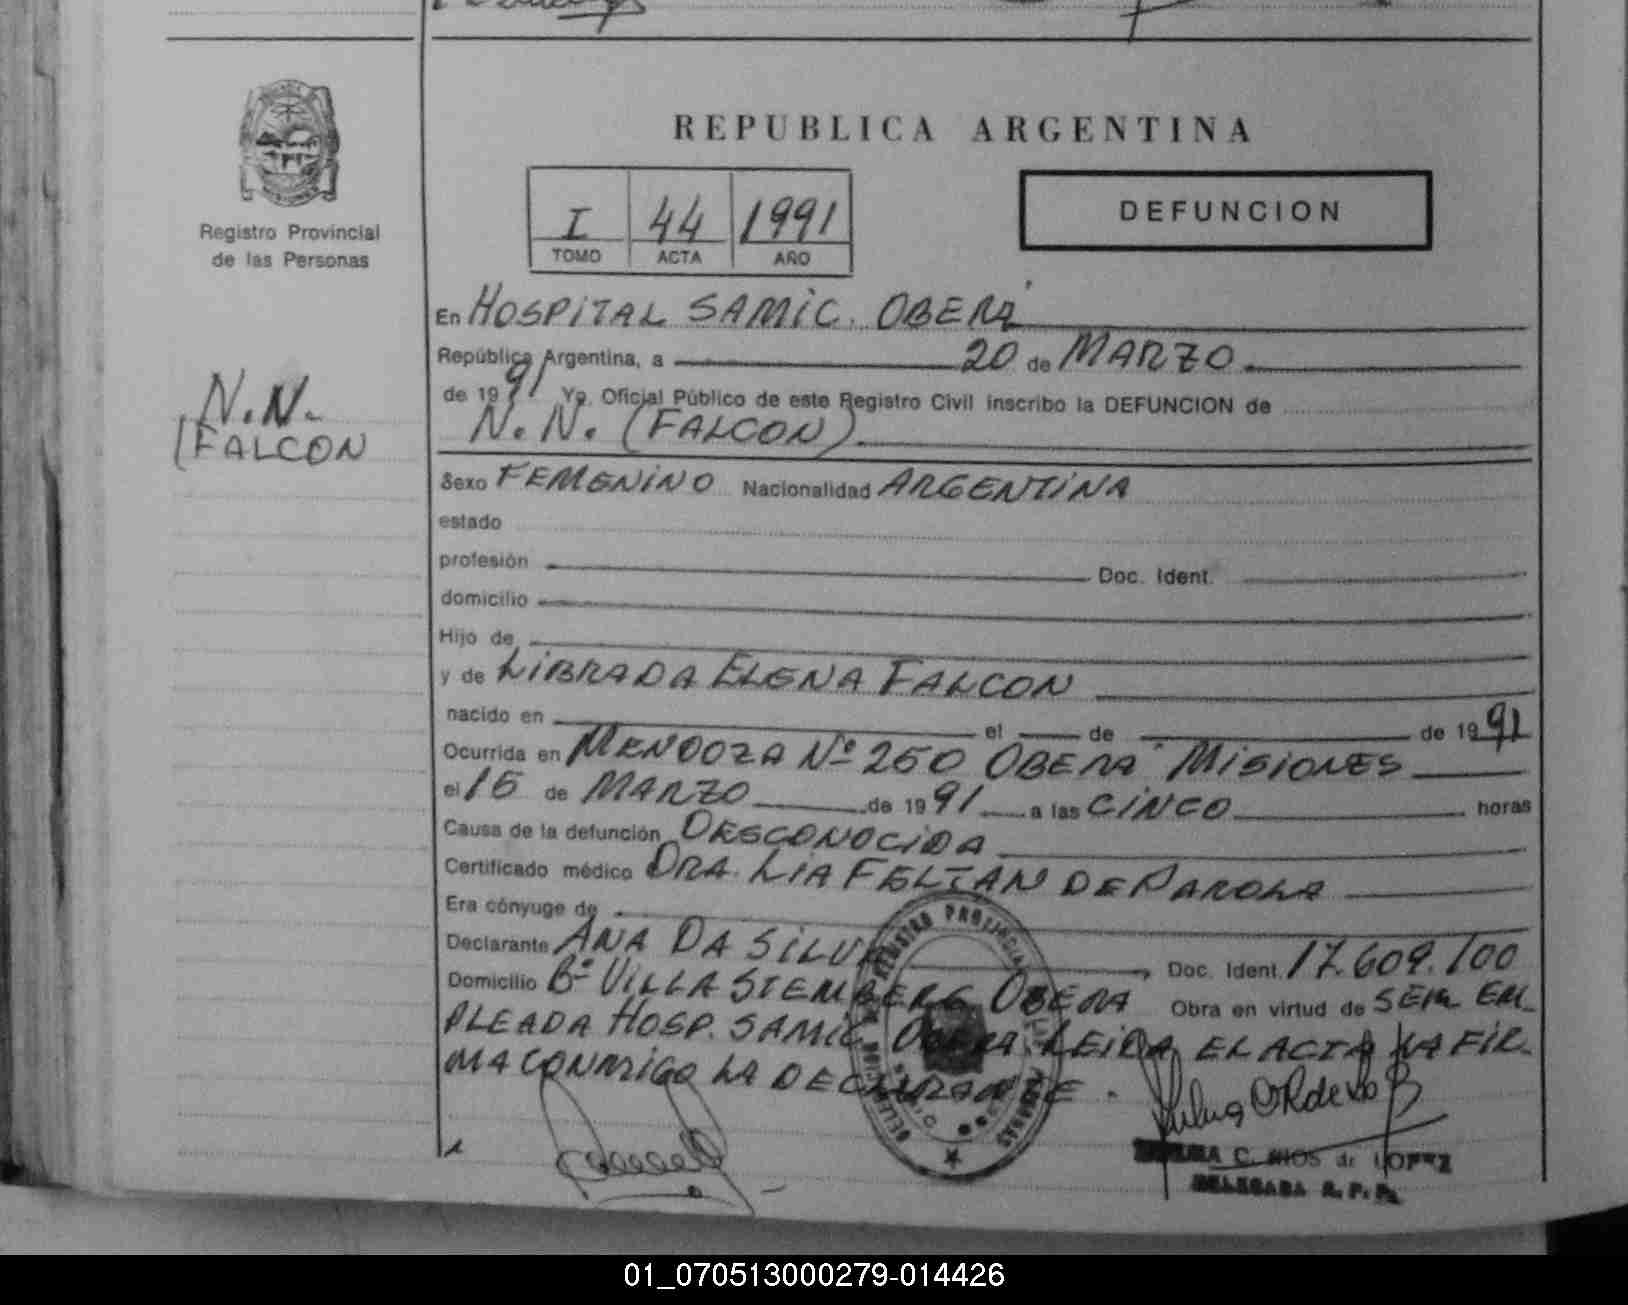 REPUBLICA ARGENTINA
I 44 1991
TOMO ACTA AÑO
DEFUNCION
Registro Provincial
de las Personas
N.N.
(FALCON
En HOSPITAL SAMIC. OBERÁ
República Argentina, a 20 de MARZO
de 1991 Yo, Oficial Público de este Registro Civil inscribo la DEFUNCION de
N.N. (FALCON)
Sexo FEMENINO Nacionalidad ARGENTINA
estado
profesión Doc. Ident.
domicilio
Hijo de
y de LIBRADA ELENA FALCON
nacido en el de de 1991
Ocurrida en MENDOZA Nº 250 OBERA MISIONES
el 15 de MARZO de 1991 a las CINCO horas
Causa de la defunción DESCONOCIDA
Certificado médico DRA. LIA FELTAN DE PAROLA
Era cónyuge de
Declarante ANA DA SILVA Doc. Ident. 17.609.100
Domicilio Bº VILLA STEMBERG OBERA Obra en virtud de SER EM-
PLEADA HOSP. SAMIC OBERA LEIDA EL ACTA LA FIR-
MA CONMIGO LA DECLARANTE.
C. RIOS de LOPEZ
DELEGADA R. P. P.
01_070513000279-014426